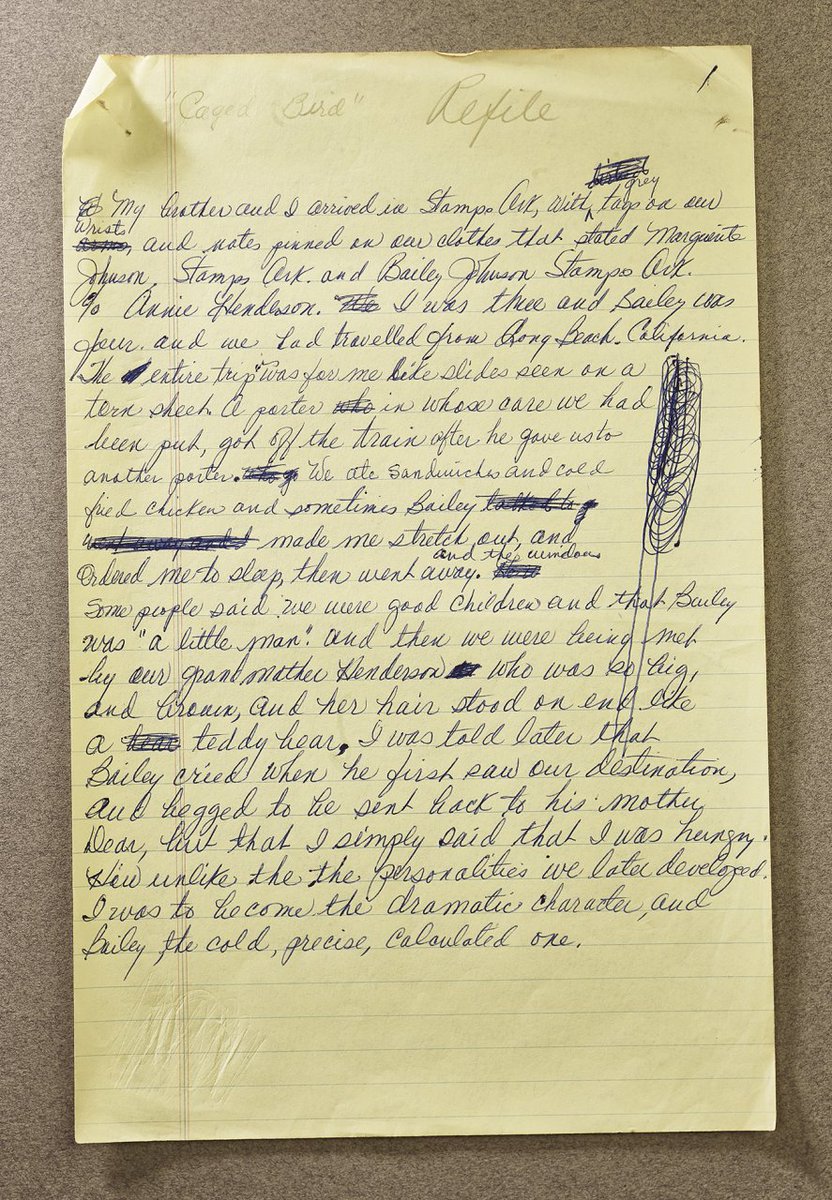 "Caged Bird" Refile 1
grey
My brother and I arrived in Stamps Ark, with tags on our
wrists
arms, and notes pinned on our clothes that stated Marguerite
Johnson, Stamps Ark. and Bailey Johnson Stamps Ark.
c/o Annie Henderson. I was three and Bailey was
four. and we had travelled from Long Beach. California.
The entire trip was for me like slides seen on a
torn sheet. A porter who in whose care we had
been put, got off the train after he gave us to
another porter. We ate sandwiches and cold
fried chicken and sometimes Bailey talked to
went away and I made me stretch out, and
and the windows
Ordered me to sleep, then went away.
Some people said we were good children and that Bailey
was "a little man". and then we were being met
by our grandmother Henderson who was so big,
and brown, and her hair stood on end like
a bear teddy bear. I was told later that
Bailey cried when he first saw our destination,
and begged to be sent back to his mother
Dear, but that I simply said that I was hungry.
How unlike the the personalities we later developed.
I was to become the dramatic character, and
Bailey, the cold, precise, calculated one.